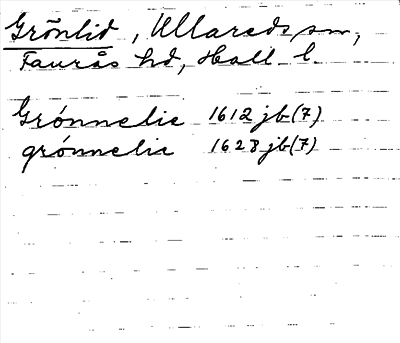 Grönlid, Ullareds sn,
Faurås hd, Hall. l.
Grønnelie 1612 jb (7)
grønnelie 1628 jb (7)